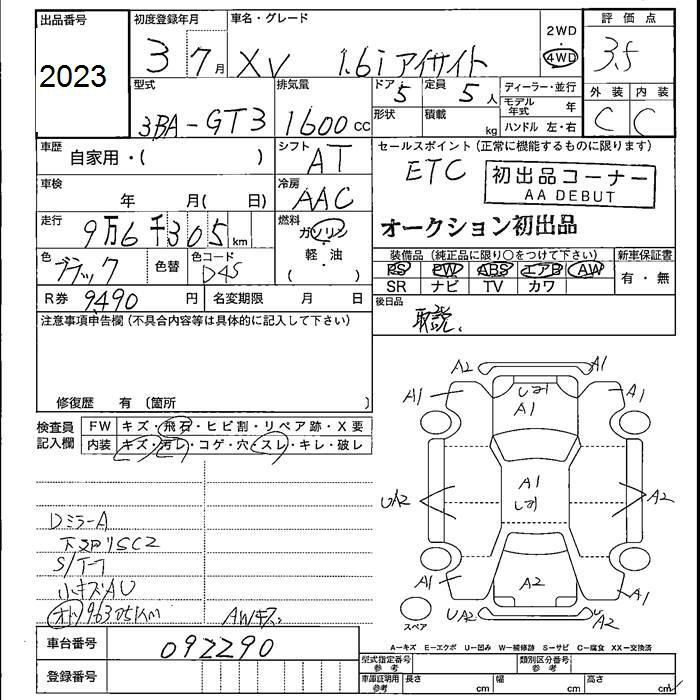 出品番号 初度登録年月 車名・グレード 2WD・4WD 評価点
2023 3 7月 XV 1.6i アイサイト 3.5
型式 排気量 ドア 5 定員 5人 ディーラー・並行 外装 内装
モデル年式 年
3BA-GT3 1600cc 形状 積載 kg ハンドル 左・右 C C
車歴 自家用・( ) シフト AT セールスポイント(正常に機能するものに限ります)
ETC 初出品コーナー
AA DEBUT
車検 年 月( 日) 冷房 AAC
走行 9万6千305km 燃料 ガソリン・軽・油 ( ) オークション初出品
色 ブラック 色替 色コード D4S 装備品(純正品に限り○をつけて下さい) 新車保証書
PS PW ABS エアB AW 有・無
SR ナビ TV カワ
R券 9490円 名変期限 月 日 後日品
取説.
注意事項申告欄(不具合内容等は具体的に記入して下さい)
修復歴 有(箇所 )
検査員記入欄 FW キズ・飛石・ヒビ割・リペア跡・X要
内装 キズ・汚レ・コゲ・穴・スレ・キレ・破レ
DミラーA
S/T-7
小キズAU
96305km AWキズ
A2 A1
A1 A1 A1
A1
UA2 A2
A1 A2 A1
UA2 UA2
スペア
A-キズ E-エクボ U-凹み W-補修跡 S-サビ C-腐食 XX-交換済
車台番号 092290 型式指定番号 参考 類別区分番号 参考
登録番号 車庫証明用 参考 長さ cm 幅 cm 高さ cm